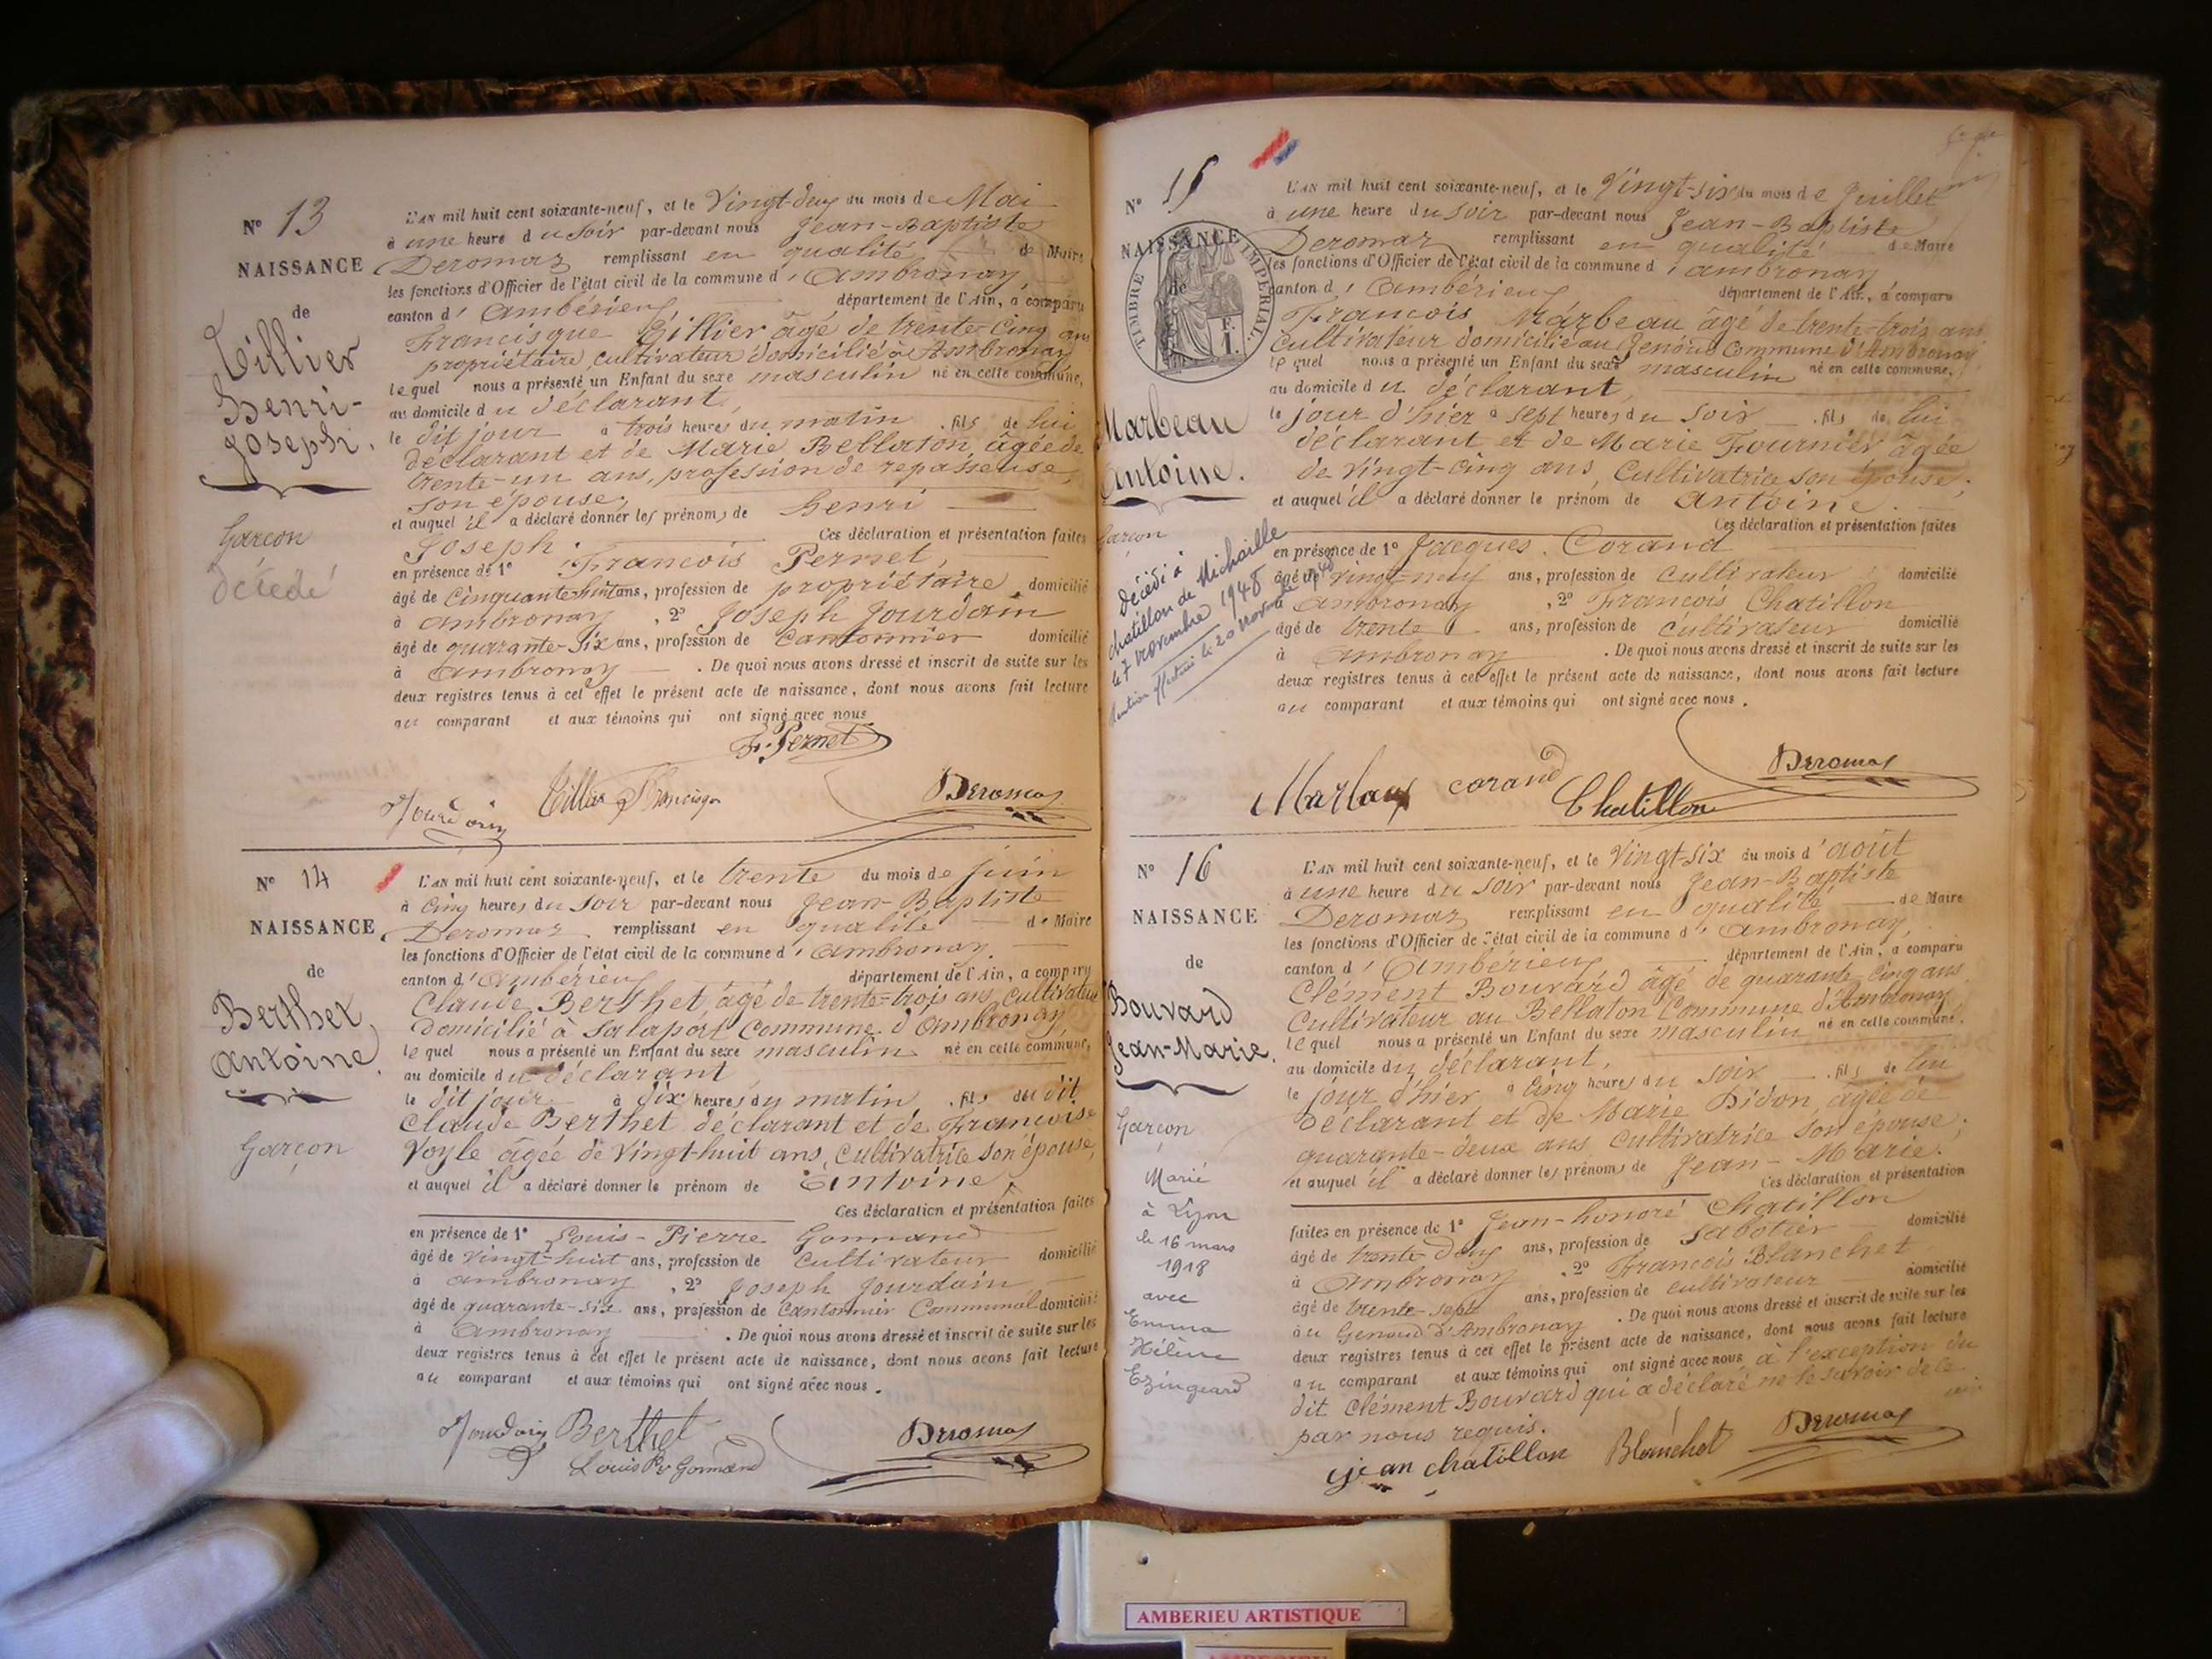 N° 13
NAISSANCE
de
Tillier
Henri-
Joseph.
Garçon
Décédé
L'AN mil huit cent soixante-neuf, et le Vingt-deux du mois de Mai
à une heure du soir par-devant nous Jean-Baptiste
Deromas remplissant en qualité de Maire
les fonctions d'Officier de l'état civil de la commune d'Ambronay
canton d'Ambérieux département de l'Ain, a comparu
Francisque Tillier âgé de trente-cinq ans
propriétaire, cultivateur domicilié à Ambronay
lequel nous a présenté un Enfant du sexe masculin né en cette commune,
au domicile du déclarant,
le dit jour à trois heures du matin, fils de lui
déclarant et de Marie Bellaton, âgée de
trente-un ans, profession de repasseuse,
son épouse;
et auquel il a déclaré donner les prénoms de Henri
Joseph. Ces déclaration et présentation faites
en présence de 1° François Pernet,
âgé de Cinquante-huit ans, profession de propriétaire domicilié
à Ambronay, 2° Joseph Jourdain
âgé de quarante-six ans, profession de Cantonnier domicilié
à Ambronay. De quoi nous avons dressé et inscrit de suite sur les
deux registres tenus à cet effet le présent acte de naissance, dont nous avons fait lecture
au comparant et aux témoins qui ont signé avec nous
F. Pernet
Jourdain Tillier Francisque Deromas
N° 14
NAISSANCE
de
Berthet
Antoine.
Garçon
L'AN mil huit cent soixante-neuf, et le trente du mois de juin
à Cinq heures du Soir par-devant nous Jean-Baptiste
Deromas remplissant en qualité de Maire
les fonctions d'Officier de l'état civil de la commune d'Ambronay.
canton d'Ambérieux département de l'Ain, a comparu
Claude Berthet âgé de trente-trois ans, cultivateur
domicilié à Salaport Commune d'Ambronay
lequel nous a présenté un Enfant du sexe masculin né en cette commune,
au domicile du déclarant,
le dit jour à six heures du matin, fils du dit
Claude Berthet déclarant et de Françoise
Voyle âgée de Vingt-huit ans, Cultivatrice son épouse,
et auquel il a déclaré donner le prénom de Antoine.
Ces déclaration et présentation faites
en présence de 1° Louis-Pierre Gonnand
âgé de vingt-huit ans, profession de cultivateur domicilié
à Ambronay, 2° Joseph Jourdain
âgé de quarante-six ans, profession de Cantonnier Communal domicilié
à Ambronay. De quoi nous avons dressé et inscrit de suite sur les
deux registres tenus à cet effet le présent acte de naissance, dont nous avons fait lecture
au comparant et aux témoins qui ont signé avec nous.
Jourdain Berthet Deromas
Louis Pre Gonnand
N° 15
NAISSANCE
de
TIMBRE IMPERIAL
F.
1.
Marbeau
Antoine.
Garçon
Décédé à
Chatillon de Michaille
le 7 novembre 1948
Mention effectuée le 20 novembre 1948
L'AN mil huit cent soixante-neuf, et le Vingt-six du mois de Juillet
à une heure du soir par-devant nous Jean-Baptiste
Deromas remplissant en qualité de Maire
les fonctions d'Officier de l'état civil de la commune d'Ambronay
canton d'Ambérieux département de l'Ain, a comparu
François Marbeau âgé de trente-trois ans
Cultivateur domicilié au Genoud Commune d'Ambronay
lequel nous a présenté un Enfant du sexe masculin né en cette commune,
au domicile du déclarant,
le jour d'hier à sept heures du soir, fils de lui
déclarant et de Marie Fournier, âgée
de Vingt-cinq ans, Cultivatrice son épouse;
et auquel il a déclaré donner le prénom de Antoine.
Ces déclaration et présentation faites
en présence de 1° Jacques Corand
âgé de vingt-neuf ans, profession de cultivateur domicilié
à Ambronay, 2° François Chatillon
âgé de trente ans, profession de cultivateur domicilié
à Ambronay. De quoi nous avons dressé et inscrit de suite sur les
deux registres tenus à cet effet le présent acte de naissance, dont nous avons fait lecture
au comparant et aux témoins qui ont signé avec nous.
Marbaux corand Chatillon Deromas
N° 16
NAISSANCE
de
Bouvard
Jean-Marie.
Garçon
Marié
à Lyon
le 16 mars
1918
avec
Emma
Hélène
Ezingeard
L'AN mil huit cent soixante-neuf, et le Vingt-six du mois d'août
à une heure du soir par-devant nous Jean-Baptiste
Deromas remplissant en qualité de Maire
les fonctions d'Officier de l'état civil de la commune d'Ambronay,
canton d'Ambérieux département de l'Ain, a comparu
Clément Bouvard âgé de quarante-cinq ans
Cultivateur au Bellaton Commune d'Ambronay
lequel nous a présenté un Enfant du sexe masculin né en cette commune,
au domicile du déclarant,
le jour d'hier à Cinq heures du soir, fils de lui
déclarant et de Marie Didon, âgée de
quarante-deux ans cultivatrice son épouse;
et auquel il a déclaré donner les prénoms de Jean-Marie.
Ces déclaration et présentation
faites en présence de 1° Jean-honoré Chatillon
âgé de trente-deux ans, profession de sabotier domicilié
à Ambronay, 2° François Blanchet
âgé de trente-sept ans, profession de cultivateur domicilié
au Genoud d'Ambronay. De quoi nous avons dressé et inscrit de suite sur les
deux registres tenus à cet effet le présent acte de naissance, dont nous avons fait lecture
au comparant et aux témoins qui ont signé avec nous à l'exception du
dit Clément Bouvard qui a déclaré ne le savoir de ce
par nous requis.
jean chatillon Blanchet Deromas
AMBERIEU ARTISTIQUE